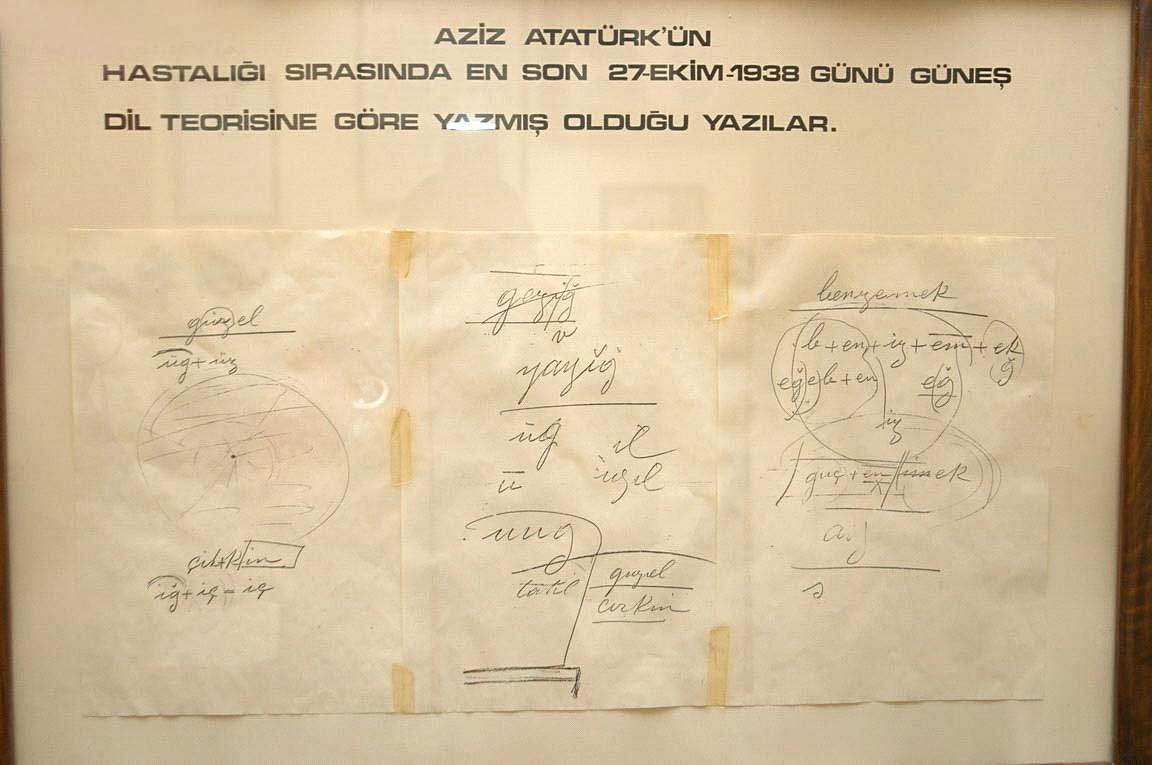 AZİZ ATATÜRK'ÜN
HASTALIĞI SIRASINDA EN SON 27-EKİM-1938 GÜNÜ GÜNEŞ
DİL TEORİSİNE GÖRE YAZMIŞ OLDUĞU YAZILAR.
güzel
üğ + üz
iğ + iç = iç
yayiğ
üğ il
ü üzel
tatil
güzel
çirkin
benzemek
b + en + iz + em + ek
ğ
eğ eb + en eğ
iz
güç + en
s